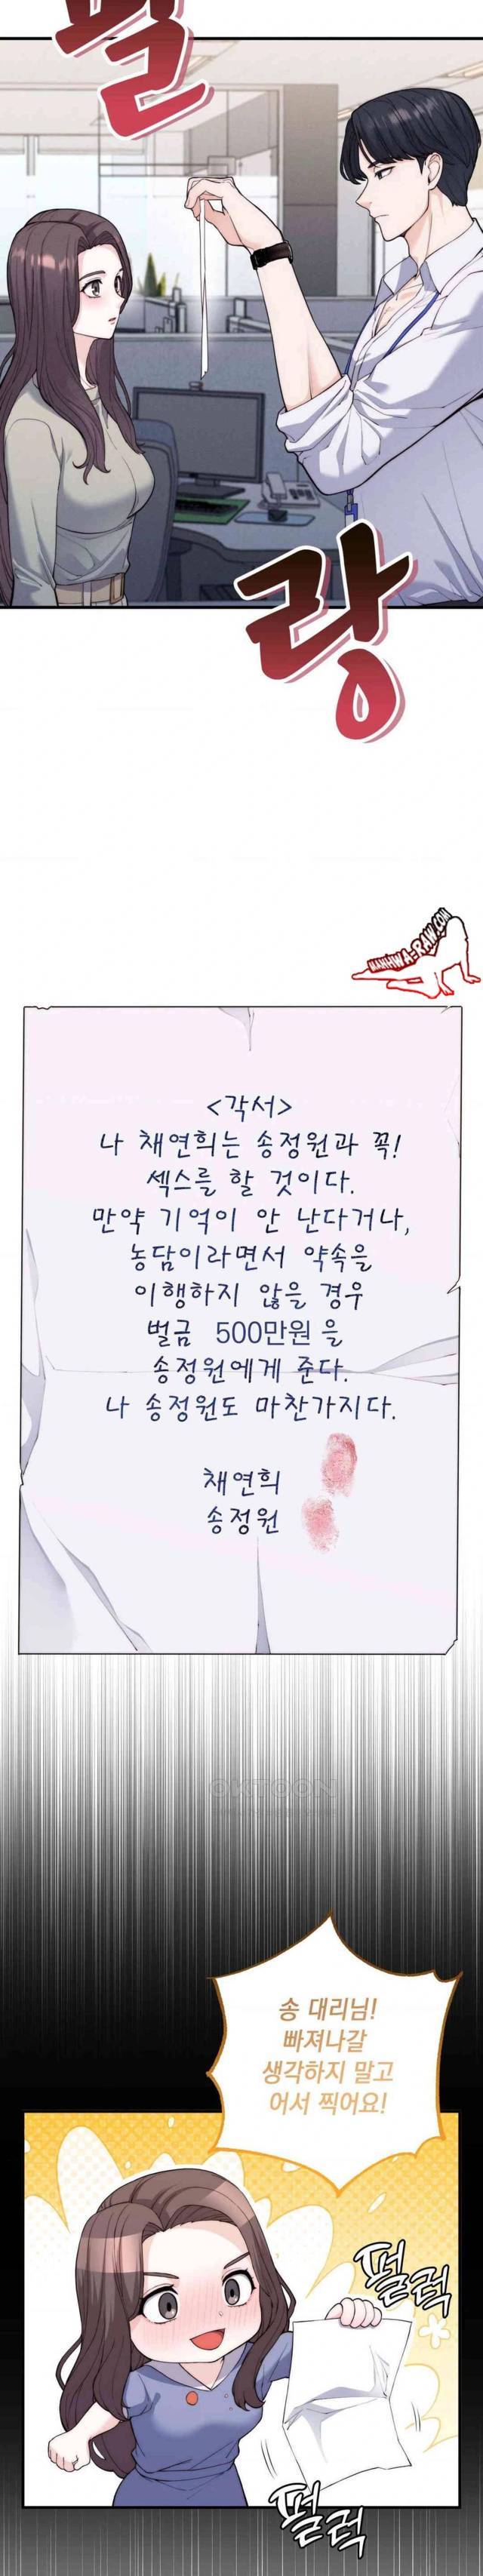 펄
랑
MANHWA-RAW.COM
<각서>
나 채연희는 송정원과 꼭!
섹스를 할 것이다.
만약 기억이 안 난다거나,
농담이라면서 약속을
이행하지 않을 경우
벌금 500만원 을
송정원에게 준다.
나 송정원도 마찬가지다.
채연희
송정원
OKTOON
송 대리님!
빠져나갈
생각하지 말고
어서 찍어요!
펄럭
펄럭